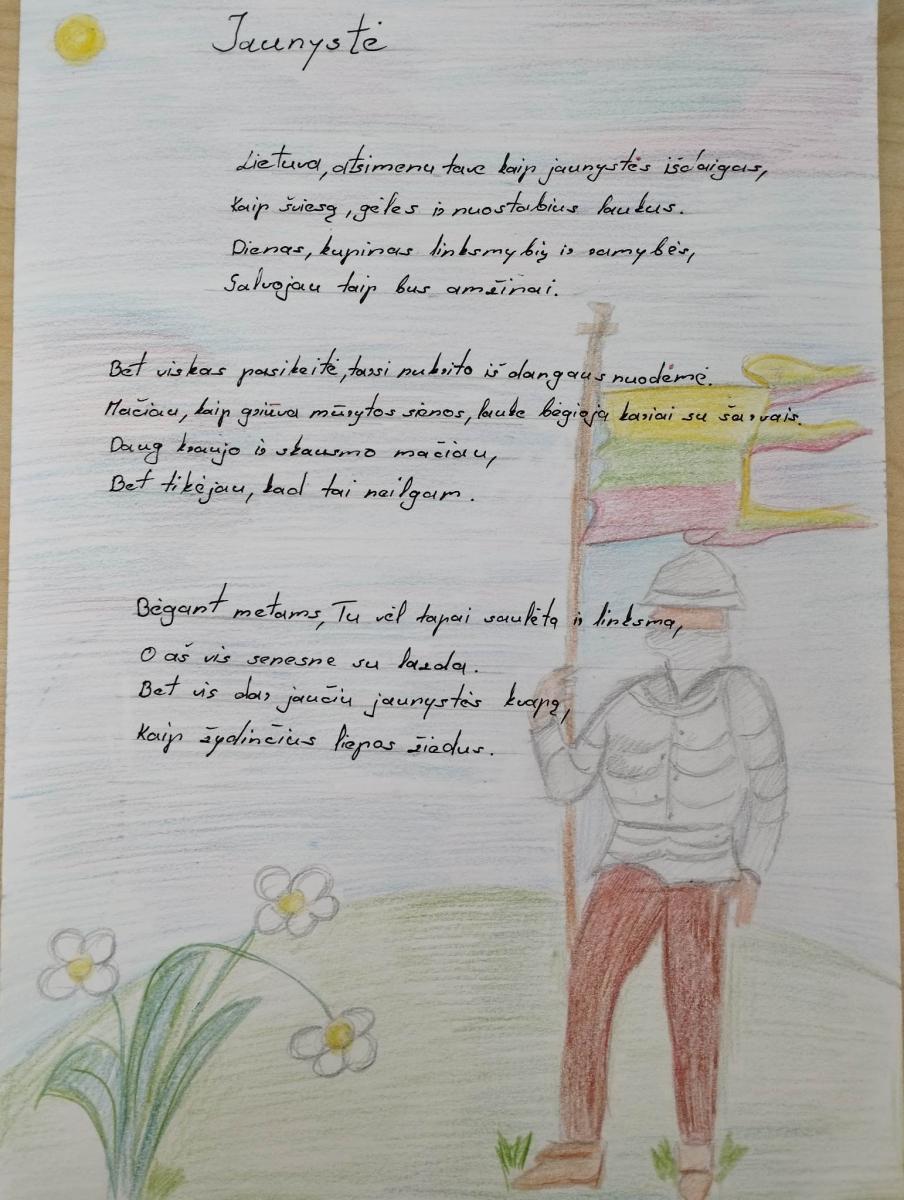 Jaunystė
Lietuva, atsimenu tave kaip jaunystės išdaigas,
Kaip šviesą, gėles ir nuostabius laukus.
Dienas, kupinas linksmybių ir ramybės,
Galvojau taip bus amžinai.
Bet viskas pasikeitė, tarsi nukrito iš dangaus nuodėmė.
Mačiau, kaip griūva mūrytos sienos, lauke bėgioja kariai su šarvais.
Daug kraujo ir skausmo mačiau,
Bet tikėjau, kad tai neilgam.
Bėgant metams, Tu vėl tapai saulėta ir linksma,
O aš vis senesnė su lazda.
Bet vis dar jaučiu jaunystės kvapą,
Kaip žydinčius liepos žiedus.